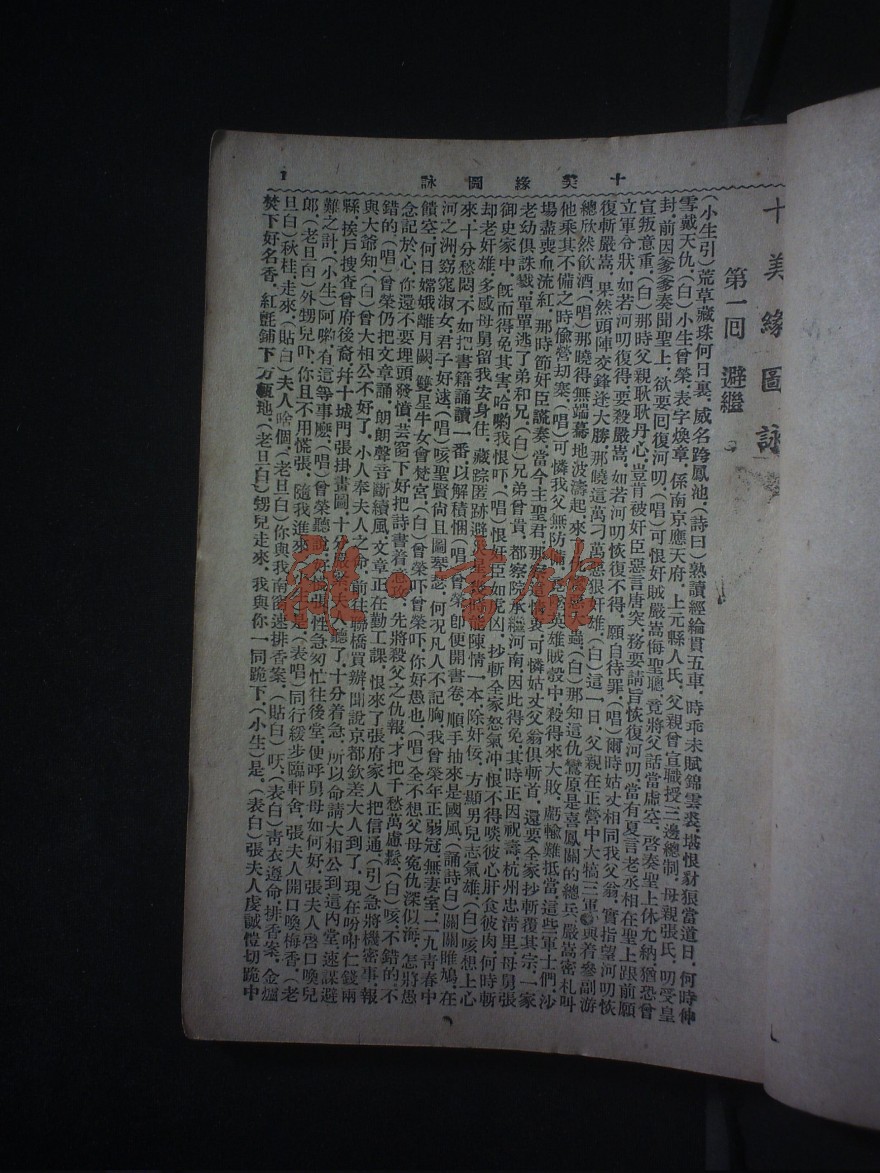 十美緣圖詠
十美緣圖詠
第一回 避繼
（小生引）荒草藏珠何日裏、威名跨鳳池、（詩曰）熟讀經綸貫五車、時乖未賦錦雲裘、堪恨豺狼當道日、何時伸
雪戴天仇、（白）小生曾榮、表字煥章、係南京應天府、上元縣人氏、父親曾宣職授三邊總制、母親張氏、叨受皇
封、前因爹爹奏聞聖上、欲要回復河叨、（唱）可恨奸賊嚴嵩侮聖聽、竟將父話當虛空、啓奏聖上休允納、猶恐曾
宣叛意重、（白）那時父親耿耿丹心、豈肯被奸臣惡言唐突、務要請旨恢復河叨、當有夏言老丞相在聖上跟前願
立軍令狀、如若河叨復得、要殺嚴嵩、如若河叨恢復不得、願自待罪、（唱）爾時姑丈相同我父翁、實指望河叨恢
復斬嚴嵩、果然頭陣交鋒逢大勝、那曉這萬刁萬惡狠奸雄、（白）這一日、父親在正營中大犒三軍、與着參副游
總欣然飲酒、（唱）那曉得無端驀地波濤起、來 蟲、（白）那知這仇鸞原是喜鳳關的總兵、嚴嵩密札叫
他乘其不備之時偸營刧寨、（唱）可憐我父無防備 英雄賊彀中、殺得來大敗、虧輸難抵當、這些軍士們、沙
場盡喪血流紅、那時節奸臣謊奏、當今主聖君、那 情衷、可憐姑丈父翁俱斬首、還要全家抄斬覆其宗、一家
老幼俱誅戮、單單逃了弟和兄、（白）兄弟曾貴、都察院承繼河南、因此得免、其時正因祝壽、杭州忠淸里母舅張
御史家中、旣而得免其害、哈喲我恨吓、（唱）恨奸臣如虎凶、抄斬全家怒氣沖、恨不得啖彼心肝食彼肉、何時斬
却老奸雄、多感母舅留我安身住、藏踪匿跡避 陳情一本、除奸佞、方顯男兒志氣雄、（白）咳想上心
來、十分愁悶、不如把書籍誦讀一番、以解積悃、（唱）曾榮卽便開書卷、順手抽來是國風、（誦詩白）關關雎鳩、在
河之洲、窈窕淑女、君子好逑、（唱）咳聖賢尙且圖琴瑟、何况凡人不記胸、我曾榮年正弱冠、無妻室、二九靑春中
饋空、何日嫦娥離月闕、雙星牛女會梵宮、（白）曾榮吓曾榮吓、你好愚也、（唱）全不想父母寃仇深似海、怎將愚
念記於心、你還不要埋頭發憤、芸窗下好把詩書着意攻、先將殺父之仇報、才把千愁萬慮鬆、（白）咳、不錯的、不
錯的、（唱）曾榮仍把文章誦、朗朗聲音斷續風、文章正在勤工課、恨來了張府家人把信通、（引）急將機密事、報
與大爺知、（白）曾大相公不好了、小人奉夫人之命、前往聯橋買辦、聞說京都欽差大人到了、現在吩咐仁錢兩
縣、挨戶搜查曾府後裔、幷十城門張掛畫圖、十分嚴緊、夫人聽了、十分着急、所以命請大相公到這內堂、速謀避
難之計、（小生）阿喲、有這等事麽、（唱）曾榮聽說 性急匆忙往後堂、便呼舅母如何好、張夫人啓口喚兒
郎、（老旦白）外甥兒吓、你且不用慌張、隨我進來、（小生）是、（表唱）同行緩步臨軒舍、張夫人開口喚梅香、（老
旦白）秋桂、走來、（貼白）夫人啥個、（老旦白）你與我南窗速排香案、（貼白）吓、（表白）靑衣遵命排香案、金爐
焚下好名香、紅氈鋪下方甎地、（老旦白）甥兒走來、我與你一同跪下、（小生）是、（表白）張夫人虔誠愷切跪中